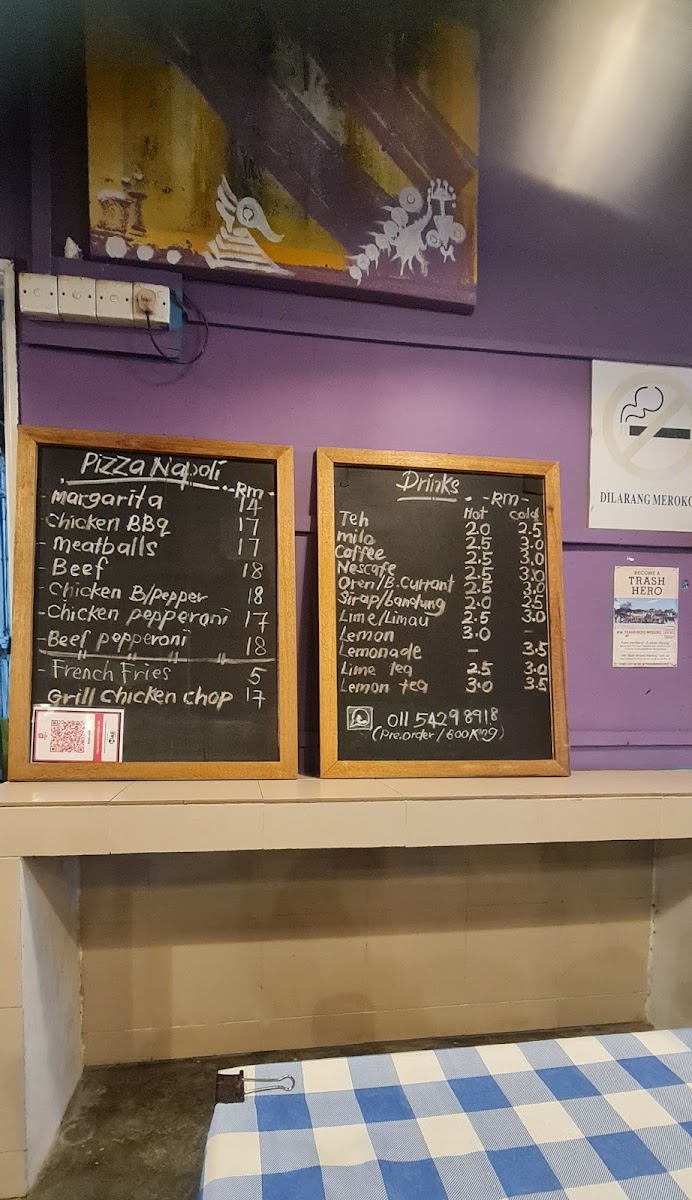 Pizza Napoli
-Rm-
- Margarita 14
- Chicken BBQ 17
- Meatballs 17
- Beef 18
- Chicken B/pepper 18
- Chicken pepperoni 17
- Beef pepperoni 18
- French Fries 5
Grill Chicken chop 17
Drinks
-Rm-
Hot Cold
Teh 2.0 2.5
milo 2.5 3.0
Coffee 2.5 3.0
Nescafe 2.5 3.0
Oren/B.Currant 2.5 3.0
Sirap/bandung 2.0 2.5
Lime/Limau 2.5 3.0
Lemon 3.0 -
Lemonade - 3.5
Lime tea 2.5 3.0
Lemon tea 3.0 3.5
011 54298918
(Pre.order/BooKing)
DILARANG MEROKO
BECOME A
TRASH
HERO